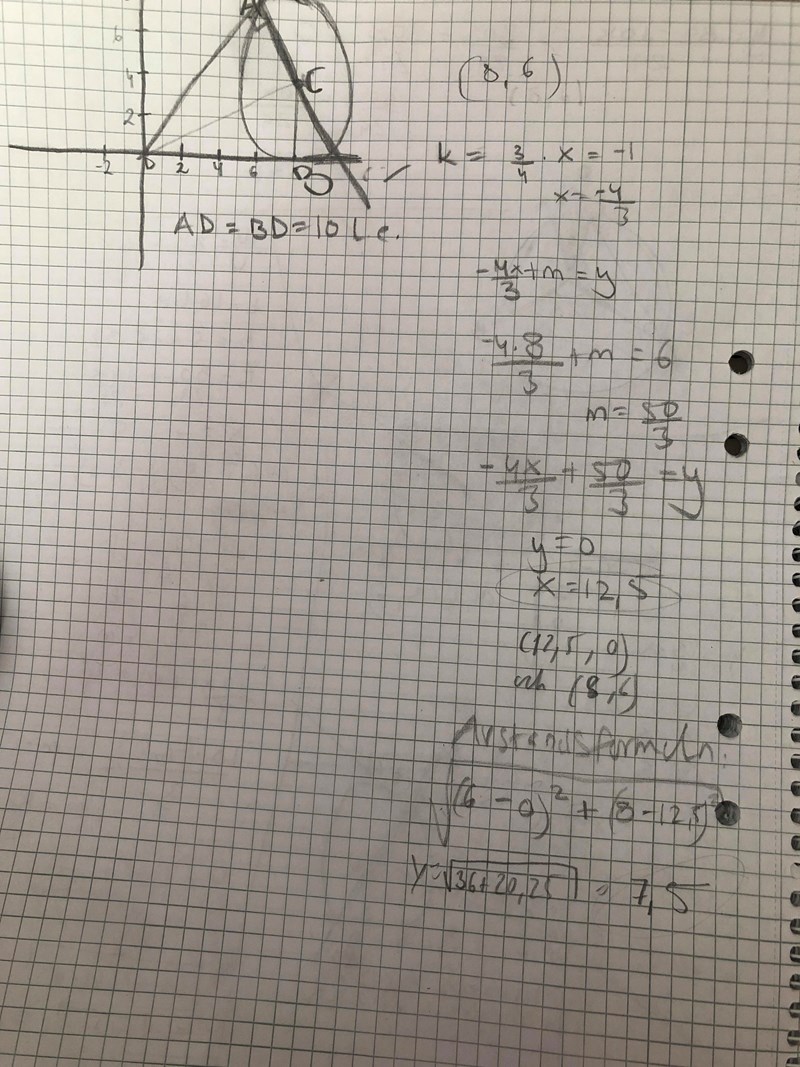 A
6
4
2
C
-2 0 2 4 6
AD = BD = 10 l.e.
(8, 6)
k = 3/4 · x = -1
x = -4/3
-4x/3 + m = y
-4·8/3 + m = 6
m = 50/3
-4x/3 + 50/3 = y
y = 0
x = 12,5
(12,5, 0)
och (8,6)
Avståndsformeln:
√(6 - 0)² + (8 - 12,5)²
y = √36+20,25 = 7,5